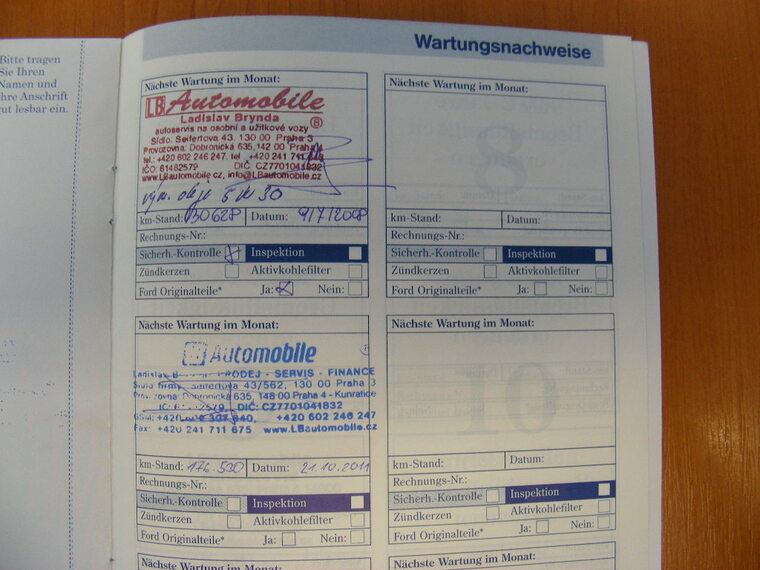 Bitte tragen
Sie Ihren
Namen und
Ihre Anschrift
gut lesbar ein.
Wartungsnachweise
Nächste Wartung im Monat:
LB Automobile
Ladislav Brynda
autoservis na osobní a užitkové vozy
8
Sídlo: Seifertova 43, 130 00 Praha 3
Provozovna: Dobronická 635, 142 00 Praha 4
tel.: +420 602 246 247, tel +420 241 711
IČO: 61462579 DIČ: CZ7701041832
www.LBautomobile.cz, info@LBautomobile.cz
vým. oleje 5W30
km-Stand: 130628 Datum: 9/7/2008
Rechnungs-Nr.:
Sicherh.-Kontrolle Inspektion
Zündkerzen Aktivkohlefilter
Ford Originalteile* Ja: Nein:
Nächste Wartung im Monat:
km-Stand: Datum:
Rechnungs-Nr.:
Sicherh.-Kontrolle Inspektion
Zündkerzen Aktivkohlefilter
Ford Originalteile* Ja: Nein:
Nächste Wartung im Monat:
LB Automobile
Ladislav PRODEJ - SERVIS - FINANCE
Sídlo firmy Seifertova 43/562, 130 00 Praha 3
Provozovna: Dobronická 635, 148 00 Praha 4 - Kunratice
DIČ: CZ7701041832
GSM: +420 +420 602 246 247
Fax: +420 241 711 675 www.LBautomobile.cz
km-Stand: 176.530 Datum: 21.10.2011
Rechnungs-Nr.:
Sicherh.-Kontrolle Inspektion
Zündkerzen Aktivkohlefilter
Ford Originalteile* Ja: Nein:
Nächste Wartung im Monat:
km-Stand: Datum:
Rechnungs-Nr.:
Sicherh.-Kontrolle Inspektion
Zündkerzen Aktivkohlefilter
Ford Originalteile* Ja: Nein:
Nächste Wartung im Monat:
Nächste Wartung im Monat: